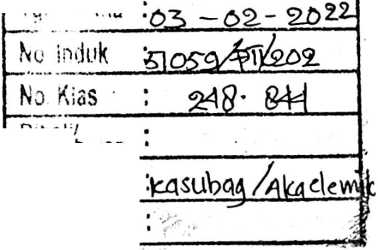 : 03 - 02 - 2022
No Induk : 51059/PTI/202
No. Klas : 248. 844
:
: kasubag/Akademik
: